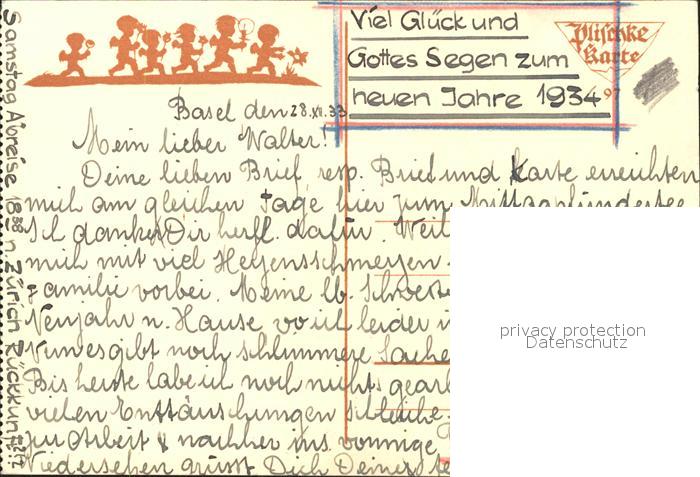 Viel Glück und
Gottes Segen zum
neuen Jahre 1934
Plischke
Karte
97
Basel den 28.XII.33
Mein lieber Walter!
Deine lieben Brief resp. Brief und Karte erreichten
mich am gleichen Tage hier zum
Ich danke Dir herzl. dafür. Weil
mich mit viel Herzensschmerzen
Familie vorbei. Meine lb. Schweste
Neujahr n. Hause wo ich leider
Nun es gibt noch schlimmere Sache
Bis heute habe ich noch nichts gear
vielen Enttäuschungen
zur Arbeit & nachher ins
Wiedersehen grüsst Dich Deine
Samstag Abreise 18 38 n. Zürich Rückkunft
privacy protection
Datenschutz